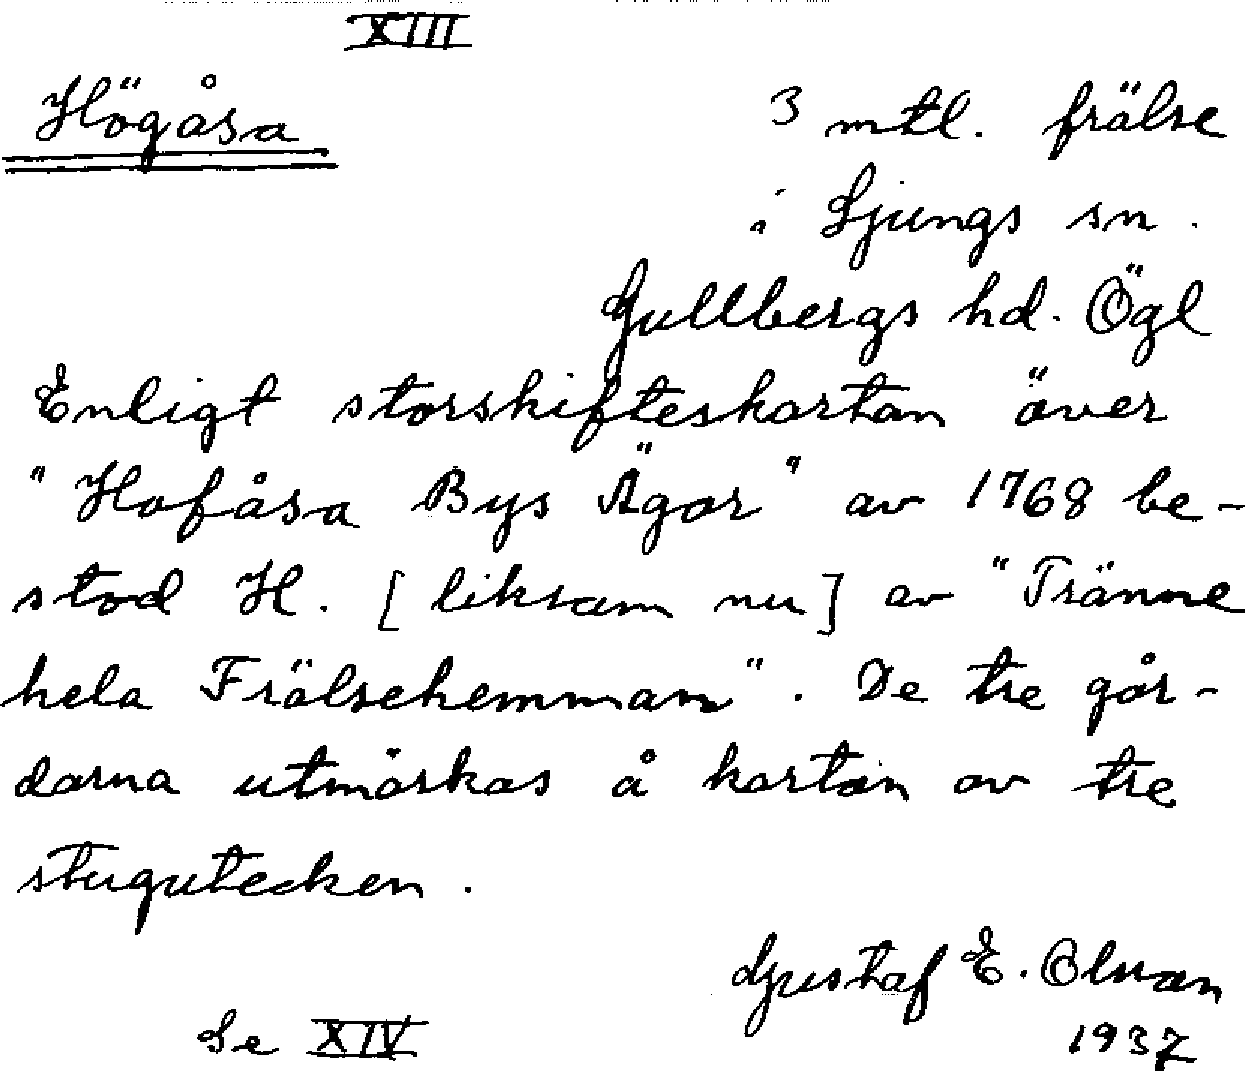 XIII
Högåsa
3 mtl. frälse
i Ljungs sn.
Gullbergs hd. Ögl
Enligt storskifteskartan över
"Hofåsa Bys Ägor" av 1768 be-
stod H. [liksom nu] av "Tränne
hela Frälsehemman". De tre går-
darna utmärkas å kartan av tre
stugutecken.
Gustaf E. Olsson
1937
Se XIV